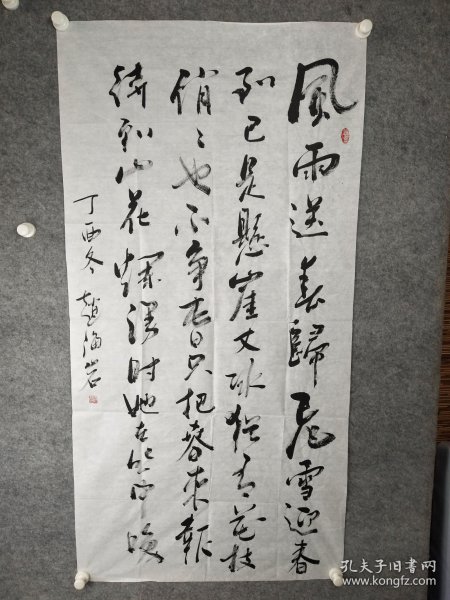 風雨送春歸飛雪迎春
到已是懸崖丈冰猶有花枝
俏〻也不争春只把春來報
待到山花爛漫時她在丛中咲
丁酉冬 趙海岩
孔夫子旧书网
www.kongfz.com